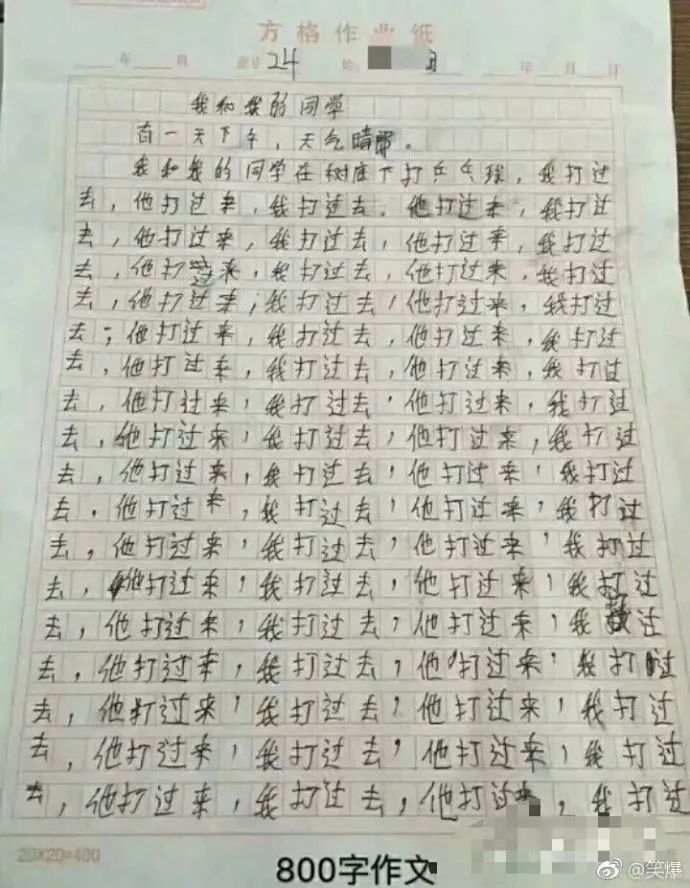 方格作业纸
年 月 24 年 月 日
我和我的同学
有一天下午，天气晴朗。
我和我的同学在树底下打乒乓球，我打过
去，他打过来，我打过去，他打过来，我打过
去，他打过来，我打过去，他打过来，我打过
去，他打过来，我打过去，他打过来，我打过
去，他打过来，我打过去，他打过来，我打过
去，他打过来，我打过去，他打过来，我打过
去，他打过来，我打过去，他打过来，我打过
去，他打过来，我打过去，他打过来，我打过
去，他打过来，我打过去，他打过来，我打过
去，他打过来，我打过去，他打过来，我打过
去，他打过来，我打过去，他打过来，我打过
去，他打过来，我打过去，他打过来，我打过
去，他打过来，我打过去，他打过来，我打过
去，他打过来，我打过去，他打过来，我过
去，他打过来，我打过去，他打过来，我打过
去，他打过来，我打过去，他打过来，我打过
去，他打过来，我打过去，他打过来，我打过
去，他打过来，我打过去，他打过来，我打过
20×20=400
800字作文
@笑爆